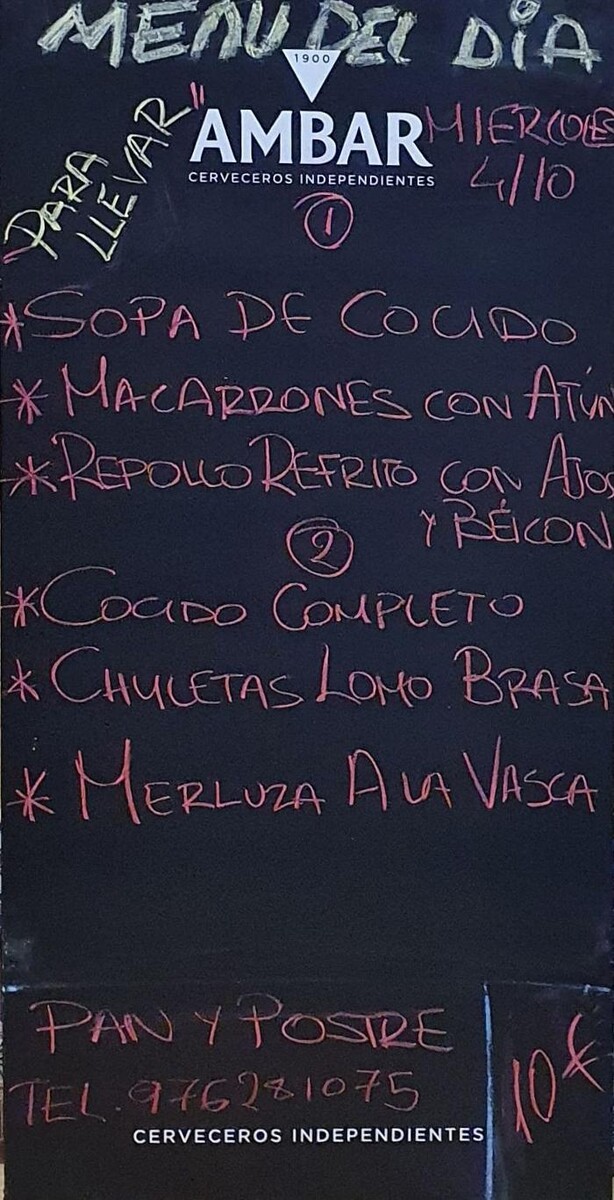 MENU DEL DÍA
1900
"PARA LLEVAR"
AMBAR
CERVECEROS INDEPENDIENTES
MIERCOLES
4/10
1
*SOPA DE COCIDO
*MACARRONES CON ATÚN
*REPOLLO REFRITO CON AJOS
Y BÉICON
2
*COCIDO COMPLETO
*CHULETAS LOMO BRASA
*MERLUZA A LA VASCA
PAN Y POSTRE
TEL. 976281075
10€
CERVECEROS INDEPENDIENTES